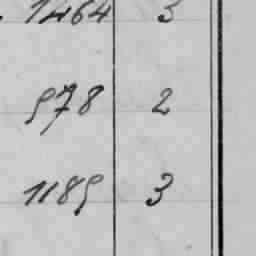 1464 3
978 2
1189 3